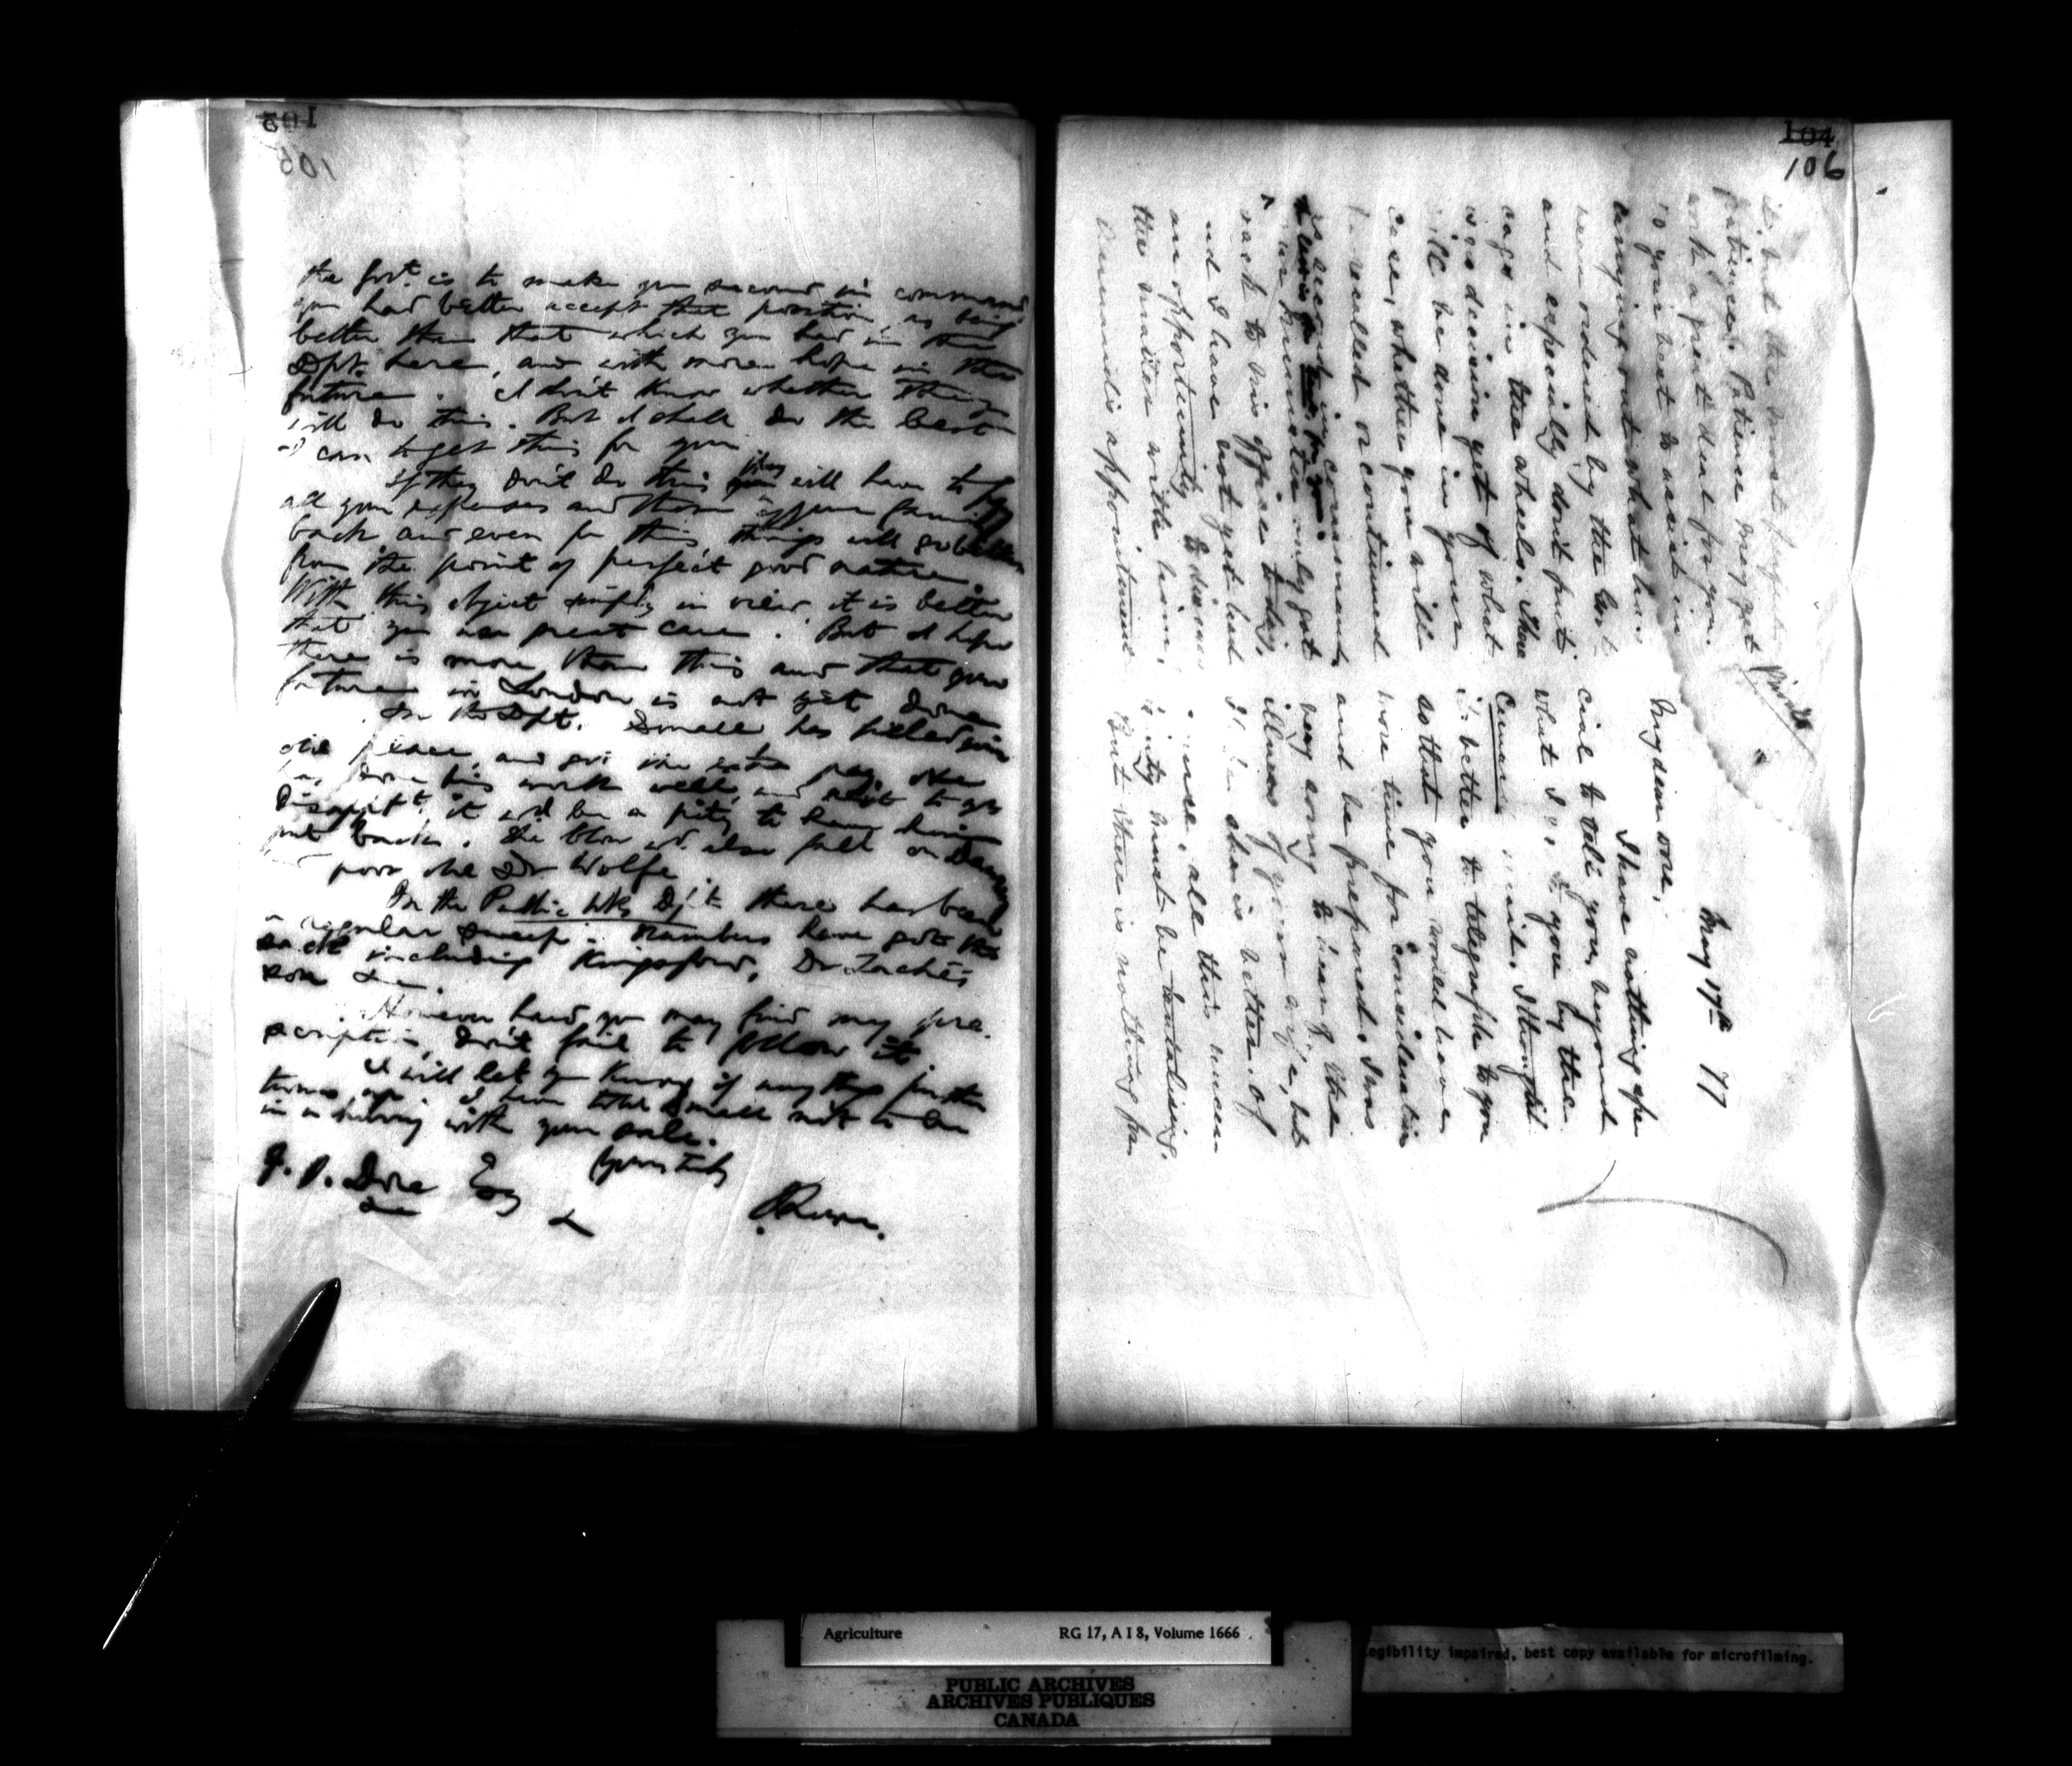 103
105
the Govt. is to make you second in command
you had better accept that position, as being
better than that which you had in the
Dpt. here, and with more hope in the
future. I don't know whether they
will do this. But I shall do the best
I can to get this for you.
If they don't do this they will have to pay
all your expenses and those of your family
back and even for this things will go better
from the point of perfect good nature.
With this object simply in view it is better
that you use great care. But I hope
there is more than this and that your
future in London is not yet done
In the Dpt. Small has filled your
old place, and got the extra pay. He
has done his work well, and not to
disappt. it wd. be a pity to have him
put back. The blow wd. also fall on
poor old Dr Wolfe
In the Public Wks Dpt. there has been
a regular sweep. Numbers have got the
sack including Kingsford, Dr Taché's
son &c.
However hard you may find my pre-
scription, don't fail to follow it.
I will let you know if any thing further
turns up. I have told Small not to be
in a hurry with your sale.
Yours truly
J. Lowe.
J. P. Dore Esq
&c &
104
106
Private
May 17th 77
My dear Dore,
I have nothing spe
cial to tell you, beyond
what I said to you by the
Cunard mail. I thought
it better to telegraph to you
so that you would have
more time for consideration
and be prepared. I was
very sorry to hear of the
illness of your wife, but
she is better. Of
course, all this uncer
tainty must be tantalising.
But there is nothing for
it, but the most perfect
patience. Patience may yet
work a great deal for you.
Do your best to assist in
carrying out what has
been ordered by the
and especially dont put
cogs in the wheels.
was decision yet of what
will be done in your
case, whether you will
be recalled or continued
as second in command
Our Minister only got
back to his office today,
and I have not yet had
an opportunity to discuss
the matter with him.
appointment
Agriculture RG 17, A I 8, Volume 1666
PUBLIC ARCHIVES
ARCHIVES PUBLIQUES
CANADA
egibility impaired, best copy available for microfilming.